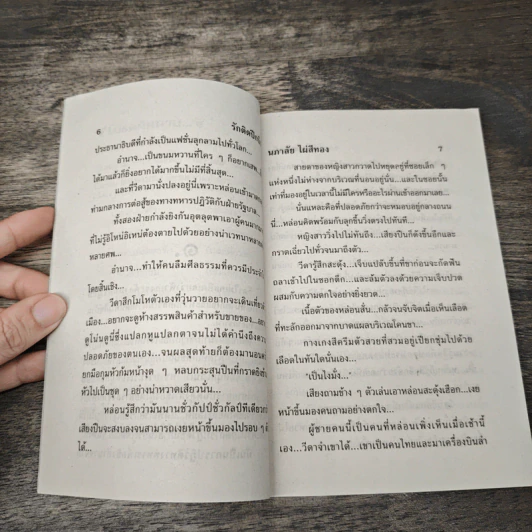 6
รักติดปีก
ประธานาธิบดีที่กำลังเป็นแฟชั่นลุกลามไปทั่วโลก...
อำนาจ...เป็นขนมหวานที่ใคร ๆ ก็อยากเสพ...
ได้มาแล้วก็ยิ่งอยากได้มากขึ้นไม่มีที่สิ้นสุด...
และที่วีดามานั่งปลงอยู่นี่เพราะหล่อนเข้ามา
ท่ามกลางการต่อสู้ของทางทหารปฏิวัติกับฝ่ายรัฐบาล
ทั้งสองฝ่ายกำลังยิงกันอุตลุดพาเอาผู้คน
ที่ไม่รู้อิโหน่อิเหน่ต้องตายไปด้วยอย่างน่าเวทนา
หลายศพ...
อำนาจ...ทำให้คนลืมศีลธรรมที่ควรมี
โดยสิ้นเชิง...
วีดาสึกโมโหตัวเองที่วุ่นวายอยากจะเดิน
เมือง...อยากจะดูห้างสรรพสินค้าสำหรับขายของ...
ดูโน่นดูนี่ซึ่งแปลกหูแปลกตาจนไม่ได้คำนึงถึง
ปลอดภัยของตนเอง...จนผลสุดท้ายก็ต้องมานอน
ยกมือกุมหัวก้มหน้างุด ๆ หลบกระสุนปืนที่กราด
หัวไปเป็นชุด ๆ อย่างน่าหวาดเสียวนั่น...
หล่อนรู้สึกว่ามันนานชั่วกัปป์ชั่วกัลป์ทีเดียว
เสียงปืนจะสงบลงจนสามารถเงยหน้าขึ้นมองไปรอบ ๆ
ได้...
นภาลัย ไผ่สีทอง
7
สายตาของหญิงสาวกวาดไปหยุดอยู่ที่ซอยเล็ก ๆ
แห่งหนึ่งไม่ห่างจากบริเวณที่นอนอยู่นั่น...และในซอยนั้น
เท่าที่มองอยู่ในเวลานี้ไม่มีใครหรืออะไรผ่านเข้าออกมาเลย...
นั่นแหละคือที่ปลอดภัยกว่าจะหมอบอยู่กลางถนน
...หล่อนคิดพร้อมกับลุกขึ้นวิ่งตรงไปทันที...
หญิงสาววิ่งไปไม่ทันถึง...เสียงปืนก็ดังขึ้นอีกและ
กราดเฉี่ยวไปทั่วจนมาถึงตัว...
วีดารู้สึกสะดุ้ง...เจ็บแปลบขึ้นที่ขาก่อนจะกัดฟัน
ถลาเข้าไปในซอกตึก...และล้มตัวลงด้วยความเจ็บปวด
ผสมกับความตกใจอย่างยิ่งยวด...
เนื้อตัวของหล่อนสั่น...กลัวจนจับจิตเมื่อเห็นเลือด
ที่ทะลักออกมาจากบาดแผลบริเวณโคนขา...
กางเกงสีครีมตัวสวยที่สวมอยู่เปียกชุ่มไปด้วย
เลือดในทันใดนั่นเอง...
"เป็นไงมั่ง..."
เสียงถามข้าง ๆ ตัวเล่นเอาหล่อนสะดุ้งเฮือก...เงย
หน้าขึ้นมองคนถามอย่างตกใจ...
ผู้ชายคนนี้เป็นคนที่หล่อนเพิ่งเห็นเมื่อเช้านี้
เอง...วีดาจำเขาได้...เขาเป็นคนไทยและมาเครื่องบินลำ